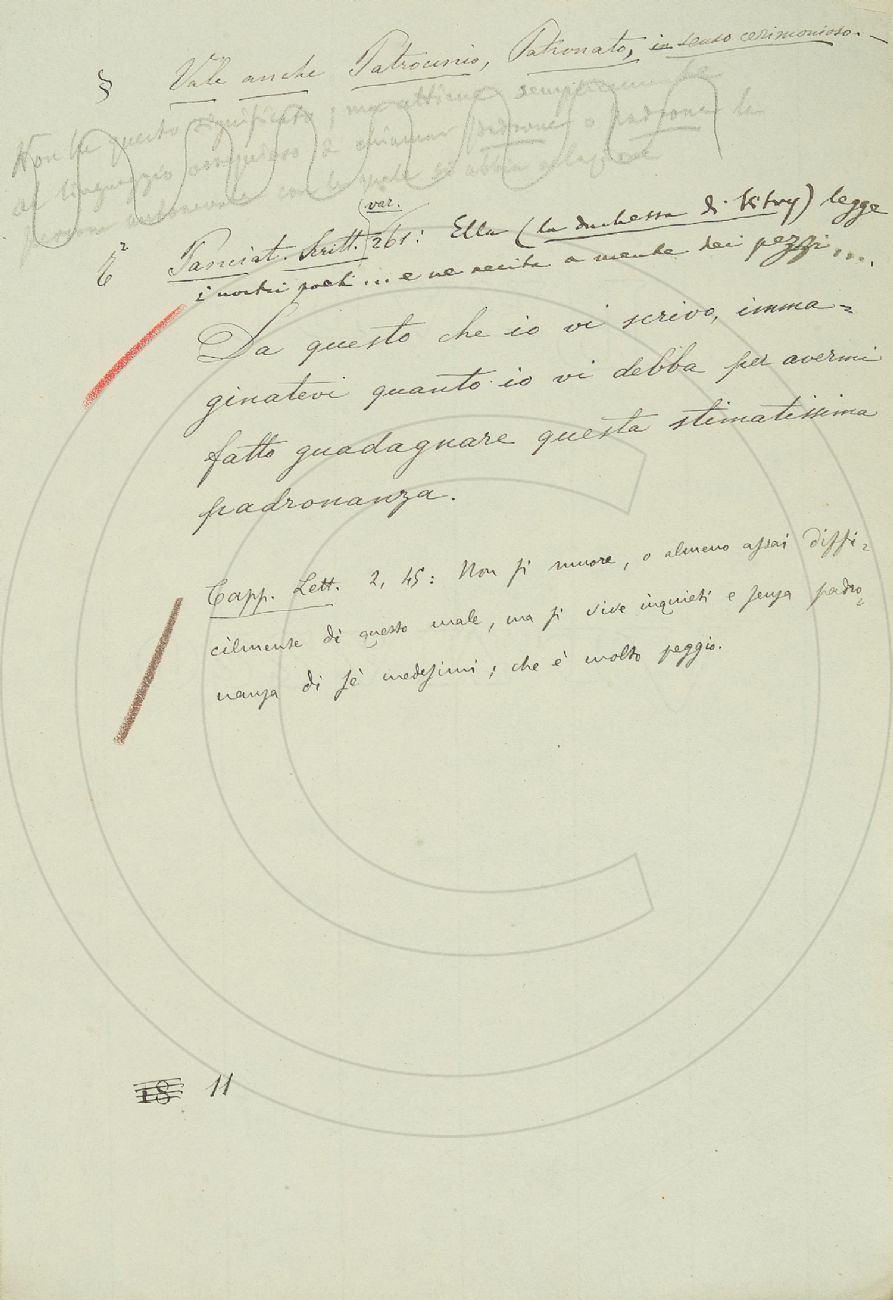 § Vale anche Patrocinio, Patronato, in senso cerimonioso. —
Non ha questo significato; ma attiene semplicemente
al linguaggio ossequioso di chiamar padrone o padrona la
persona autorevole con la quale si abbia relazione
Panciat. Scritt. var. 261: Ella (la duchessa di Kitry) legge
i nostri poeti ... e ne recita a mente dei pezzi ...
Da questo che io vi scrivo, imma=
ginatevi quanto io vi debba per avermi
fatto guadagnare questa stimatissima
padronanza.
Capp. Lett. 2, 45: Non si muore, o almeno assai diffi=
cilmente di questo male, ma si vive inquieti e senza padro=
nanza di sè medesimi; che è molto peggio.
18 11